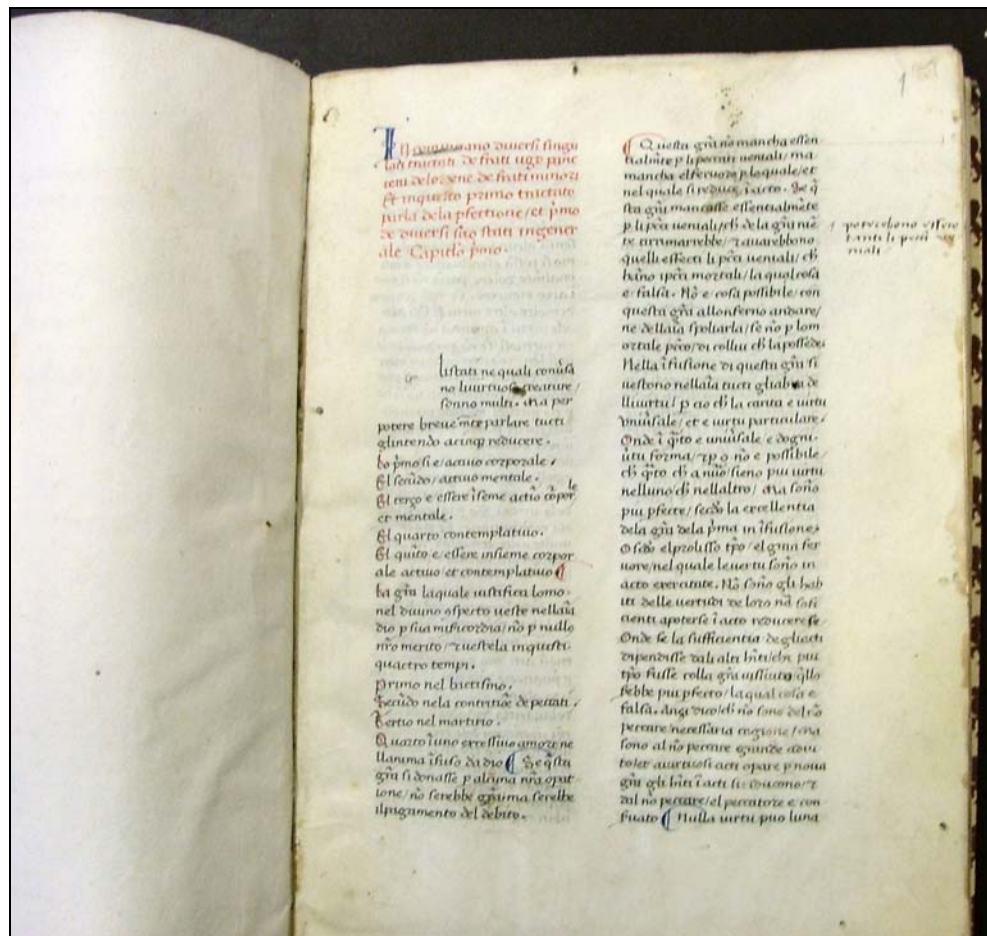 diversi singu
lari tractati de frati ugo panc
de lordene de frati minori
Et inquesto primo tractato
parla dela pfectione/et pmo
de diversi stati ingener
ale Capitolo pmo.
listati ne quali
no livirtuose creature/
sonno multi. Ma per
potere breve mte parlare tucti
glintendo acinq reducere.
Lo pmo si e/activo corporale.
El secūdo/activo mentale.
El terço e essere īseme activo corporale
et mentale.
El quarto contemplativo.
El quīto e/essere insieme corpor
ale activo et contemplativo
La grā laquale iustifica lomo
nel divino aspecto veste nellaīa
dio p sua misicordia/nō p nullo
nrō merito/ inquisti
quactro tempi.
Primo nel battisimo.
Secūdo nela contritiōe de peccati.
Tertio nel martirio.
Quarto ī uno excessivo amore ne
llanima īfuso da dio Se qsta
grā si donasse p alcuna nrā operat
ione/nō serebbe grā/ma serebbe
ilpagamento del debito.
Questa grā nō mancha essen
tialmīte p li peccati veniali/ma
mancha elfervore ploquale/et
nel quale si reduce ī acto. Se q
sta grā mancasse essentialmēte
p li pccī veniali/ch dela grā nie
te rimarrebbe/ avarebbono
quelli effecti li pccī veniali/ch
hāno ipccī mortali/laqual cosa
e falsa. Nō e cosa possibile/con
questa grā allonferno andare/
ne dellaīa spoliarla/se nō p lom
ortale pccō/di collui ch la possede.
Nella īfusione di questa grā si
vestono nellaīa tucti gliabiti de
llivirtu/p cio ch la carita e virtu
vniūsale/et e virtu particulare.
Onde ī qto e uniūsale e dogni
ūtu forma/ nō e possibile/
ch qto ch a nūo/sieno piu virtu
nelluno/ch nellaltro/Ma sono
piu pfecte/secōdo la excellentia
dela grā dela pma in īfusione.
O secōdo elprolisso tpo/el gran fer
vore/nel quale levertu sono in
acto exercitate. Nō sono gli hab
iti delle vertudi de loro nā sofi
cienti apoterse ī acto reducerese
Onde se la sufficientia degliacti
dipendisse dali alti hīti/chi piu
tpo fusse colla grā vissiuto qllo
sebbe piu pfecto/laqual cosa e
falsa. Anzi dico/ch nō sono del nō
peccare/necessaria cagione/ma
sono al nō peccare grande
avirtuosi acti opare p nova
grā gli hīti ī acti
dal nō peccare/el peccatore e con
fuato Nulla virtu puo luna
potrebono essere
tanti li peccī ve
niali